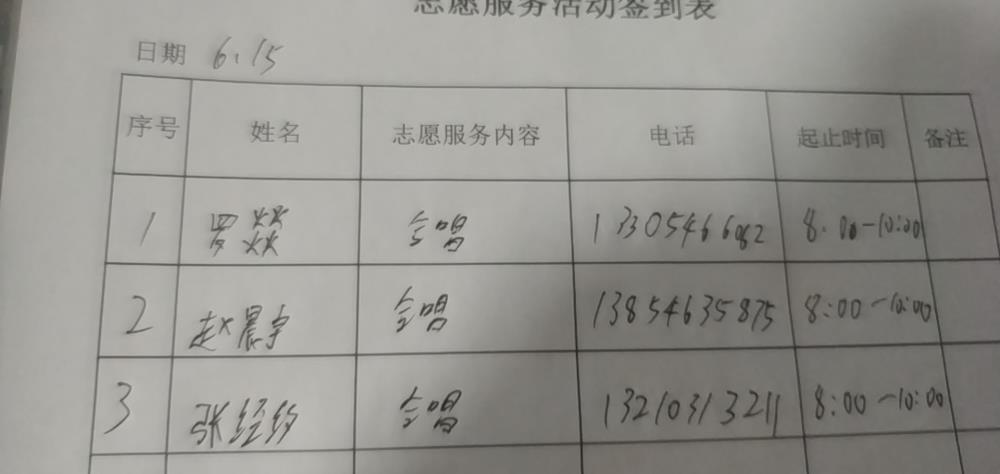 志愿服务活动签到表
日期 6.15
序号 姓名 志愿服务内容 电话 起止时间 备注
1 罗燚 合唱 13305466062 8:00-10:00
2 赵晨宇 合唱 13854635875 8:00-10:00
3 张经纬 合唱 13210313211 8:00-10:00